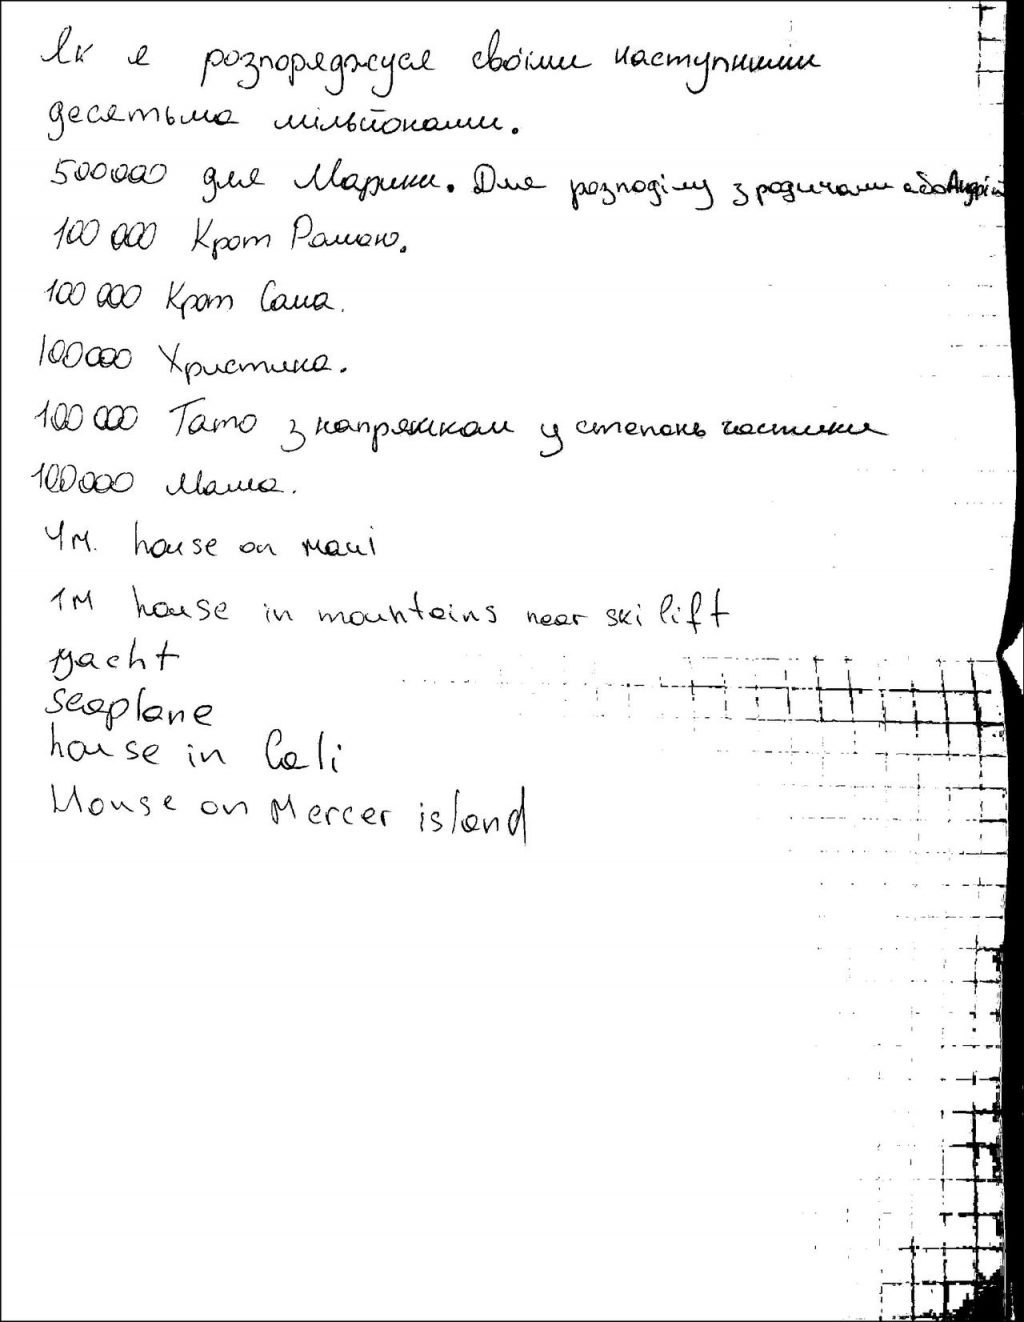 Як я розпоряджуся своїми наступними
десятьма мільйонами.
500000 для Марини. Для розподілу з родичами або
100 000 Крот Романо.
100 000 Крот Саша.
100000 Христина.
100 000 Тато з напрямком у степень частики
100000 Мама.
4м. house on maui
1м house in mountains near ski lift
yacht
seaplane
house in Cali
House on Mercer island